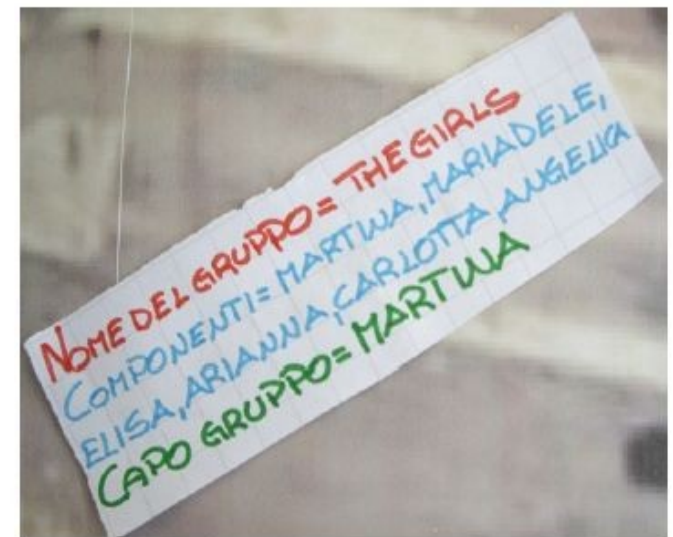 NOME DEL GRUPPO= THE GIRLS
COMPONENTI= MARTINA, MARIADELE,
ELISA, ARIANNA, CARLOTTA, ANGELICA
CAPO GRUPPO= MARTINA